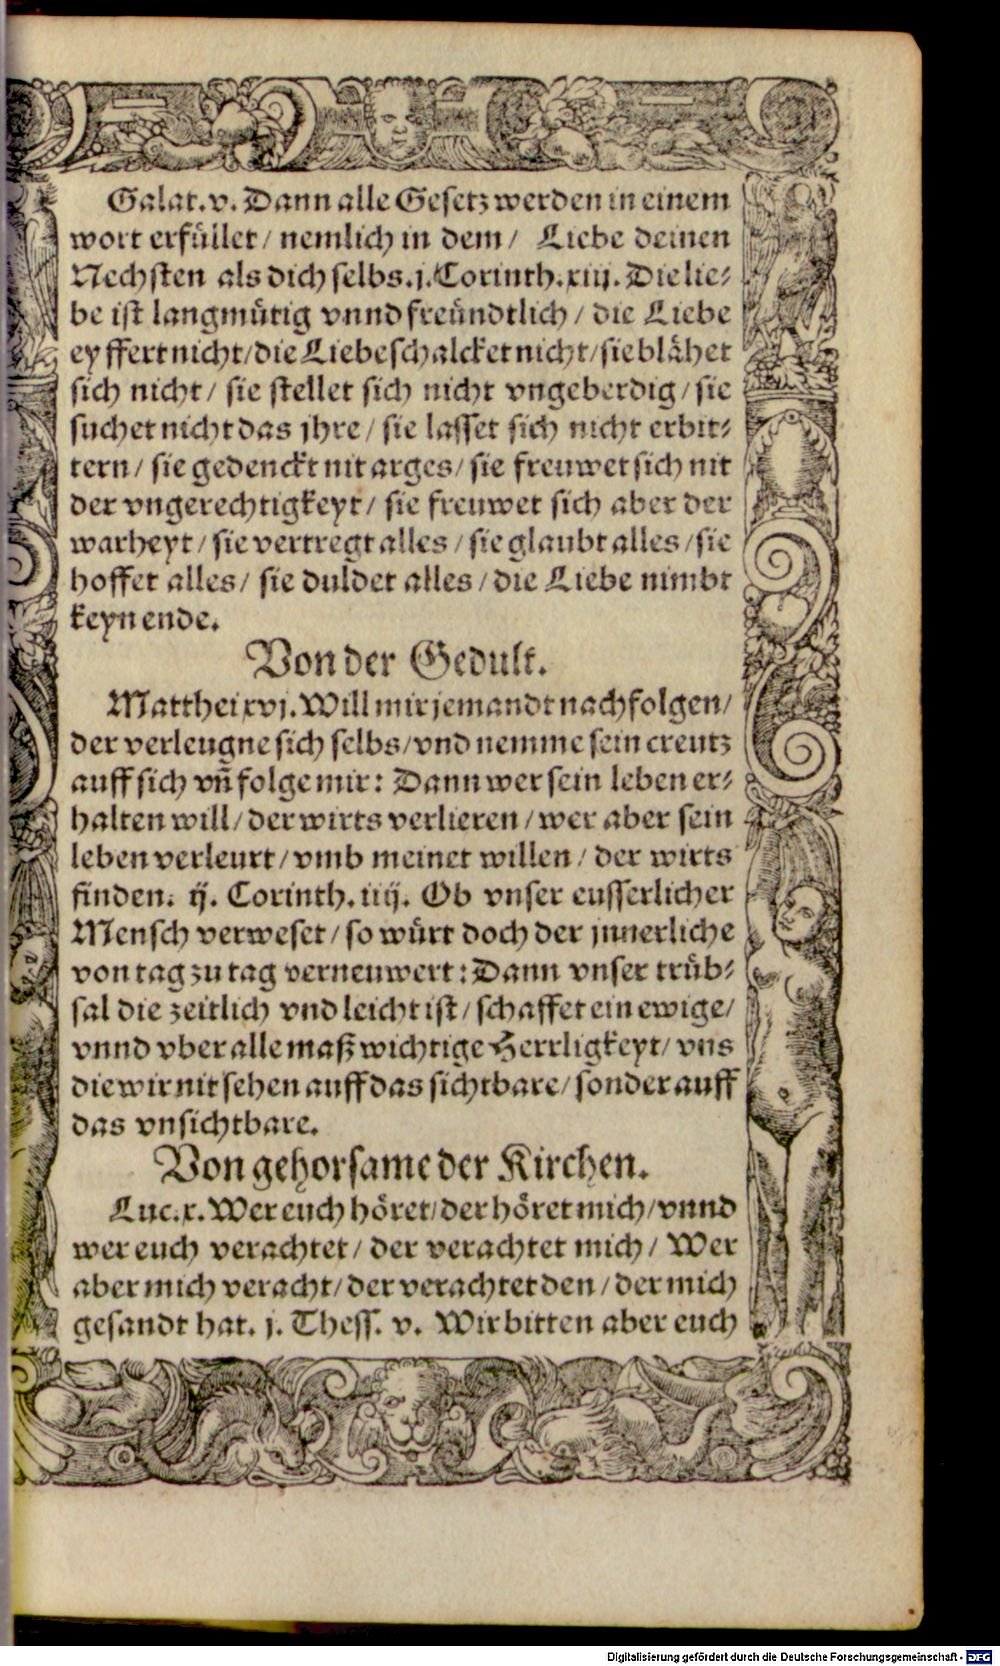 Galat. v. Dann alle Gesetz werden in einem
wort erfüllet / nemlich in dem / Liebe deinen
Nechsten als dich selbs. j. Corinth. xiij. Die lie⸗
be ist langmütig vnnd freündtlich / die Liebe
eyffert nicht / die Liebe schalcket nicht / sie blähet
sich nicht / sie stellet sich nicht vngeberdig / sie
suchet nicht das jhre / sie lasset sich nicht erbit⸗
tern / sie gedenckt nit arges / sie freuwet sich nit
der vngerechtigkeyt / sie freuwet sich aber der
warheyt / sie vertregt alles / sie glaubt alles / sie
hoffet alles / sie duldet alles / die Liebe nimbt
keyn ende.
Von der Gedult.
Matthei xvj. Will mir jemandt nachfolgen /
der verleugne sich selbs / vnd nemme sein creutz
auff sich vñ folge mir: Dann wer sein leben er⸗
halten will / der wirts verlieren / wer aber sein
leben verleurt / vmb meinet willen / der wirts
finden. ij. Corinth. iiij. Ob vnser eusserlicher
Mensch verweset / so würt doch der jnnerliche
von tag zu tag verneuwert: Dann vnser trüb⸗
sal die zeitlich vnd leicht ist / schaffet ein ewige /
vnnd vber alle maß wichtige Herrligkeyt / vns
die wir nit sehen auff das sichtbare / sonder auff
das vnsichtbare.
Von gehorsame der Kirchen.
Luc. x. Wer euch höret / der höret mich / vnnd
wer euch verachtet / der verachtet mich / Wer
aber mich veracht / der verachtet den / der mich
gesandt hat. j. Thess. v. Wir bitten aber euch
Digitalisierung gefördert durch die Deutsche Forschungsgemeinschaft - DFG